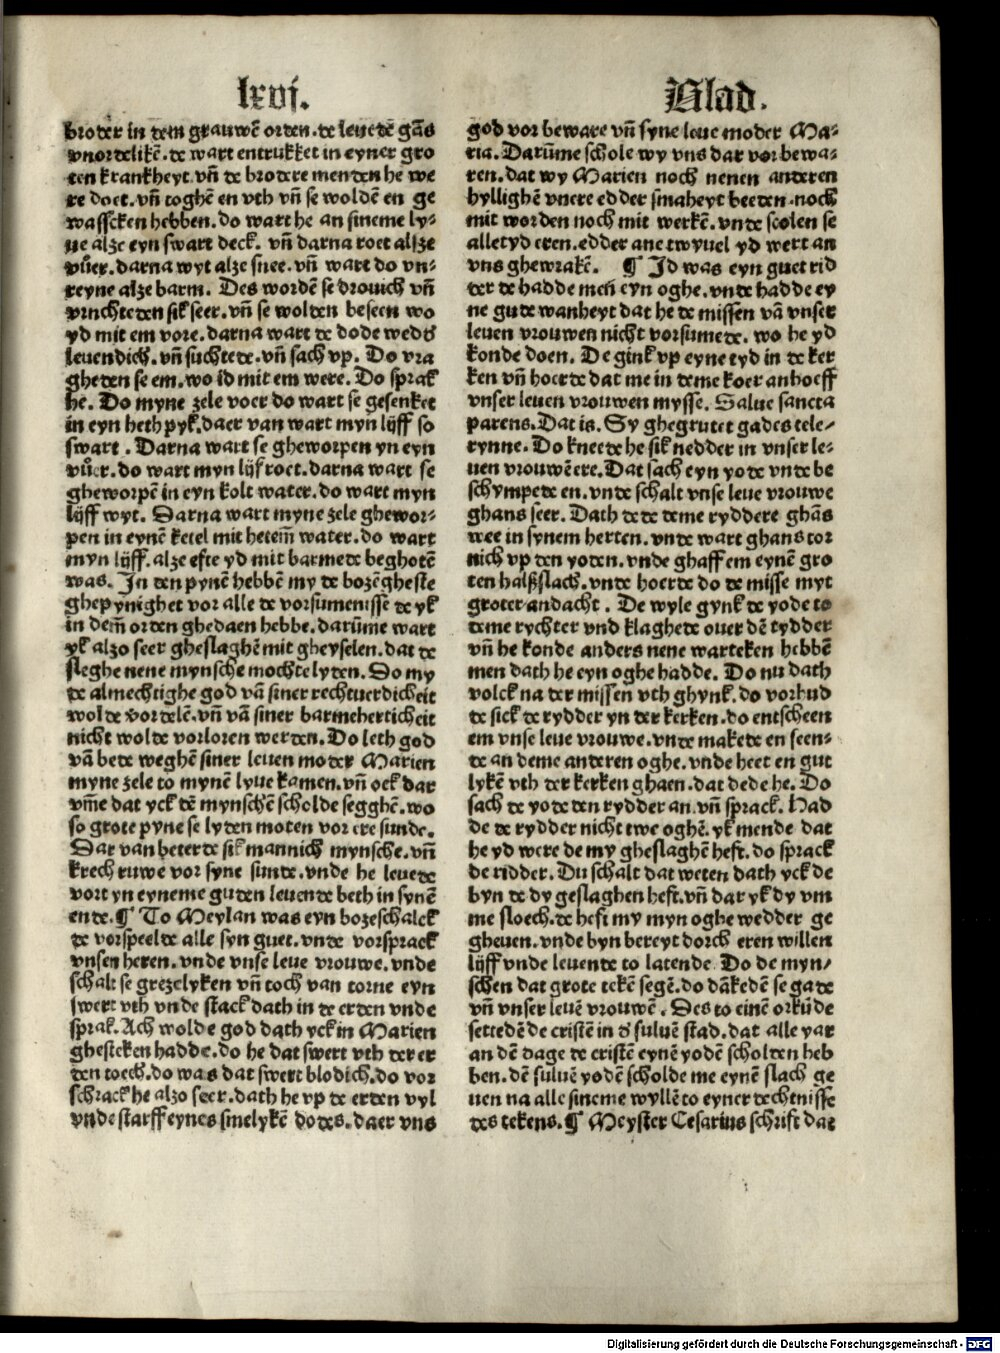 lxvj.
Blad.
broder in dem grauwē orden. de leuedē gās
vnordelikē. de wart entrukket in eyner gro
ten krankheyt. vn̄ de brodere menden he we
re doet. vn̄ toghē en vth vn̄ se woldē en ge
wasscken hebben. do wart he an sineme ly⸗
ue alze eyn swart deck. vn̄ darna roet alsze
vůer. darna wyt alze snee. vn̄ wart do vn⸗
reyne alze barm. Des wordē se drouich vn̄
vruchteden sik seer. vn̄ se wolden beseen wo
yd mit em vore. darna wart de dode wedđ
leuendich. vn̄ suchtede. vn̄ sach vp. Do vra
gheden se em. wo id mit em were. Do sprak
he. Do myne zele voer do wart se gesenket
in eyn heth pyk. daer van wart myn lijff so
swart. Darna wart se gheworpen yn eyn
vůer. do wart myn lijf roet. darna wart se
gheworpē in eyn kolt water. do wart myn
lijff wyt. Darna wart myne zele ghewor⸗
pen in eynē ketel mit hetem̄ water. do wart
myn lijff. alze efte yd mit barmede beghotē
was. In den pynē hebbē my de bozēgheste
ghepynighet vor alle de vorsumenisse de yk
in dem̄ orden ghedaen hebbe. darūme wart
yk alzo seer gheslaghē mit gheyselen. dat de
sleghe nene mynsche mochte lyden. Do my
de almechtighe god vā siner rechtuerdicheit
wolde vordelē. vn̄ vā siner barmeherticheit
nicht wolde vorloren werden. Do leth god
vā bede weghē siner leuen moder Marien
myne zele to mynē lyue kamen. vn̄ ock dar
vm̄e dat yck dē mynschē scholde segghē. wo
so grote pyne se lyden moten vor ere sunde.
Dar van beterde sik mannich mynsche. vn̄
krech ruwe vor syne sunde. vnde he leuede
vort yn eyneme guden leuende beth in synē
ende. ¶ To Meylan was eyn bozeschalck
de vorspeelde alle syn guet. vnde vorsprack
vnsen heren. vnde vnse leue vrouwe. vnde
schalt se grezelyken vn̄ toch van torne eyn
swert vth vnde stack dath in de erden vnde
sprak. Ach wolde god dath yck in Marien
ghesteken hadde. do he dat swert vth der er
den toech. do was dat swert blodich. do vor
schrack he alzo seer. dath he vp de erden vyl
vnde starff eynes smelykē dodes. daer vns
god vor beware vn̄ syne leue moder Ma⸗
ria. Darūme schole wy vns dar vor bewa⸗
ren. dat wy Marien noch nenen anderen
hyllighē vnere edder smaheyt beeden. noch
mit worden noch mit werkē. vnde scolen se
alletyd eren. edder ane twyuel yd wert an
vns ghewrakē. ¶ Id was eyn guet rid
der de hadde men̄ eyn oghe. vnde hadde ey
ne gude wanheyt dat he de missen vā vnser
leuen vrouwen nicht vorsumede. wo he yd
konde doen. De gink vp eyne tyd in de ker
ken vn̄ hoerde dat me in deme koer anhoeff
vnser leuen vrouwen mysse. Salue sancta
parens. Dat is. Sy ghegrutet gades tele⸗
rynne. Do kneede he sik nedder in vnser le⸗
uen vrouwē ere. Dat sach eyn yode vnde be
schympede en. vnde schalt vnse leue vrouwe
ghans seer. Dath dede deme ryddere ghās
wee in synem herten. vnde wart ghans tor
nich vp den yoden. vnde ghaff em eynē gro
ten halßslach. vnde hoerde do de misse myt
groter andacht. De wyle gynk de yode to
deme rychter vnd klaghede ouer dē rydder
vn̄ he konde anders nene warteken hebbē
men dath he eyn oghe hadde. Do nu dath
volck na der missen vth ghynk. do vorhud
de sick de rydder yn der kerken. do entscheen
em vnse leue vrouwe. vnde makede en seen⸗
de an deme anderen oghe. vnde heet en gut
lykē vth der kerken ghaen. dat dede he. Do
sach de yode den rydder an. vn̄ sprack. Had
de de rydder nicht twe oghē. yk mende dat
he yd were de my gheslaghē heft. do sprack
de ridder. Du schalt dat weten dath yck de
byn de dy geslaghen heft. vn̄ dar yk dy vm
me sloech. de heft my myn oghe wedder ge
gheuen. vnde byn bereyt dorch eren willen
lijff vnde leuende to latende. Do de myn⸗
schen dat grote tekē segē. do dākedē se gade
vn̄ vnser leuē vrouwē. Des to einē orkūde
settedē de cristē in đ suluē stad. dat alle yar
an dē dage de cristē eynē yodē scholden heb
ben. dē suluē yodē scholde me eynē slach ge
uen na alle sineme wyllē to eyner dechtnisse
des tekens. ¶ Meyster Cesarius schrift dat
Digitalisierung gefördert durch die Deutsche Forschungsgemeinschaft - DFG